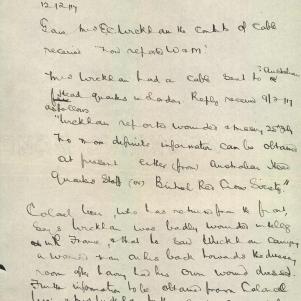 12.12.17
Gave Mrs E C Wreckham the contents of cable
received "now reported W & M."
Mrs Wreckham had a cable sent to Australian
Head quarters in London. Reply received 9/7/17
as follows
"Wreckham reported wounded & missing 25th
No more definite information can be obtained
at present either (from Australian Head
Quarters Staff (or) British Red Cross Society."
Colonel who has returned from the front,
says Wreckham was badly wounded in leg
in France, & that he saw Wreckham carrying
a wounded man on his back towards the dressing
room after having had his own wound dressed.
Further information to be obtained from Colonel